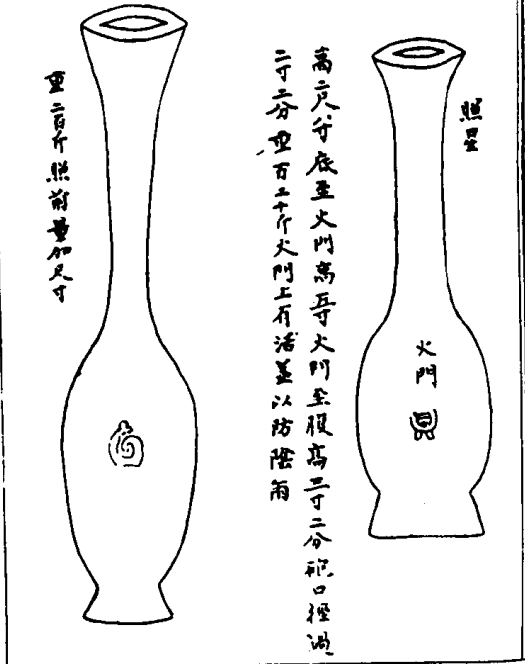 照星
火門
高二尺寸底至火門高五寸火門至腹高三寸二分砲口徑過
二寸二分重百二十斤火門上有活蓋以防陰雨
重二百斤照前量加尺寸